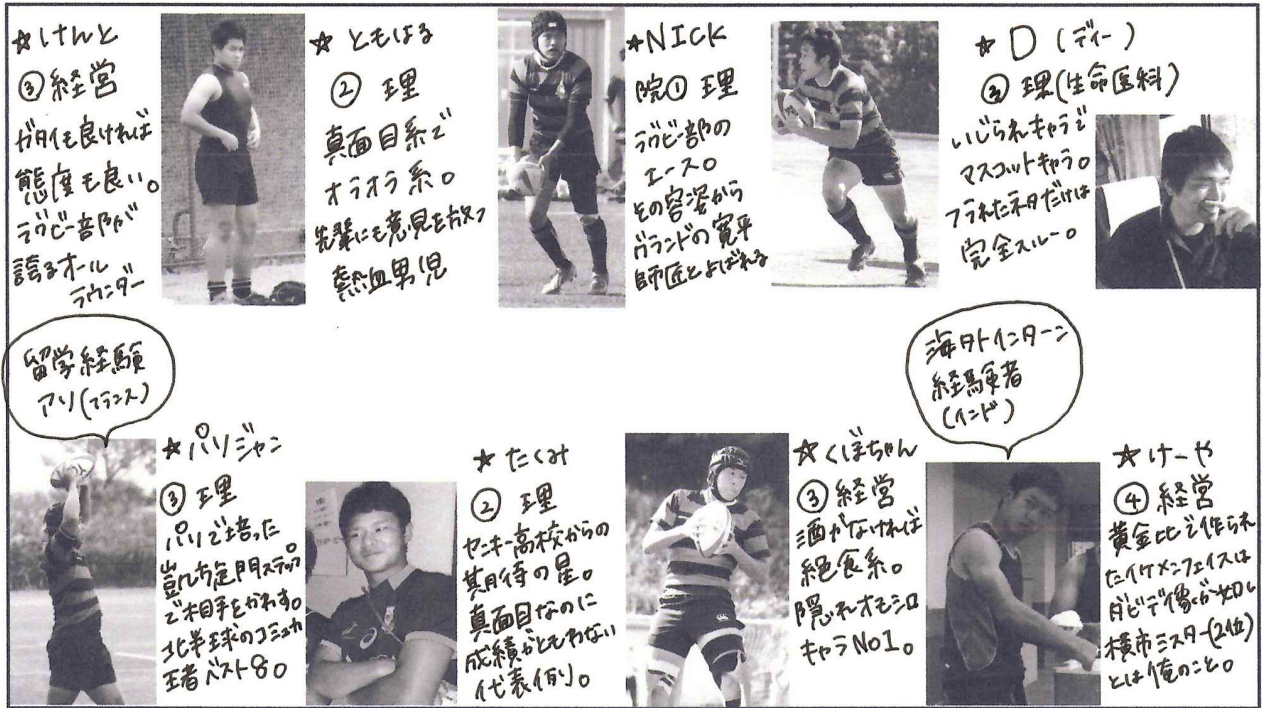 ☆けんと
③経営
ガタイも良ければ
態度も良い。
ラグビー部が
誇るオール
ラウンダー
☆ともはる
② 理
真面目系で
オラオラ系。
先輩にも意見を放つ
熱血男児
★NICK
院① 理
ラグビー部の
エース。
その容姿から
グランドの寛平
師匠とよばれる
☆D(ディー)
③ 理(生命医科)
いじられキャラで
マスコットキャラ。
フラれたネタだけは
完全スルー。
留学経験
アリ(フランス)
☆パリジャン
③ 理
パリで培った
凱旋門ステップ
で相手をかわす。
北半球のコミュ力
王者ベスト8。
☆たくみ
② 理
ヤンキー高校からの
期待の星。
真面目なのに
成績がともわない
代表例。
☆くぼちゃん
③ 経営
酒がなければ
絶食系。
隠れオモシロ
キャラNo1。
海外インターン
経験者
(インド)
☆けーや
④ 経営
黄金比で作られ
たイケメンフェイスは
ダビデ像が如し
横市ミスター(2位)
とは俺のこと。